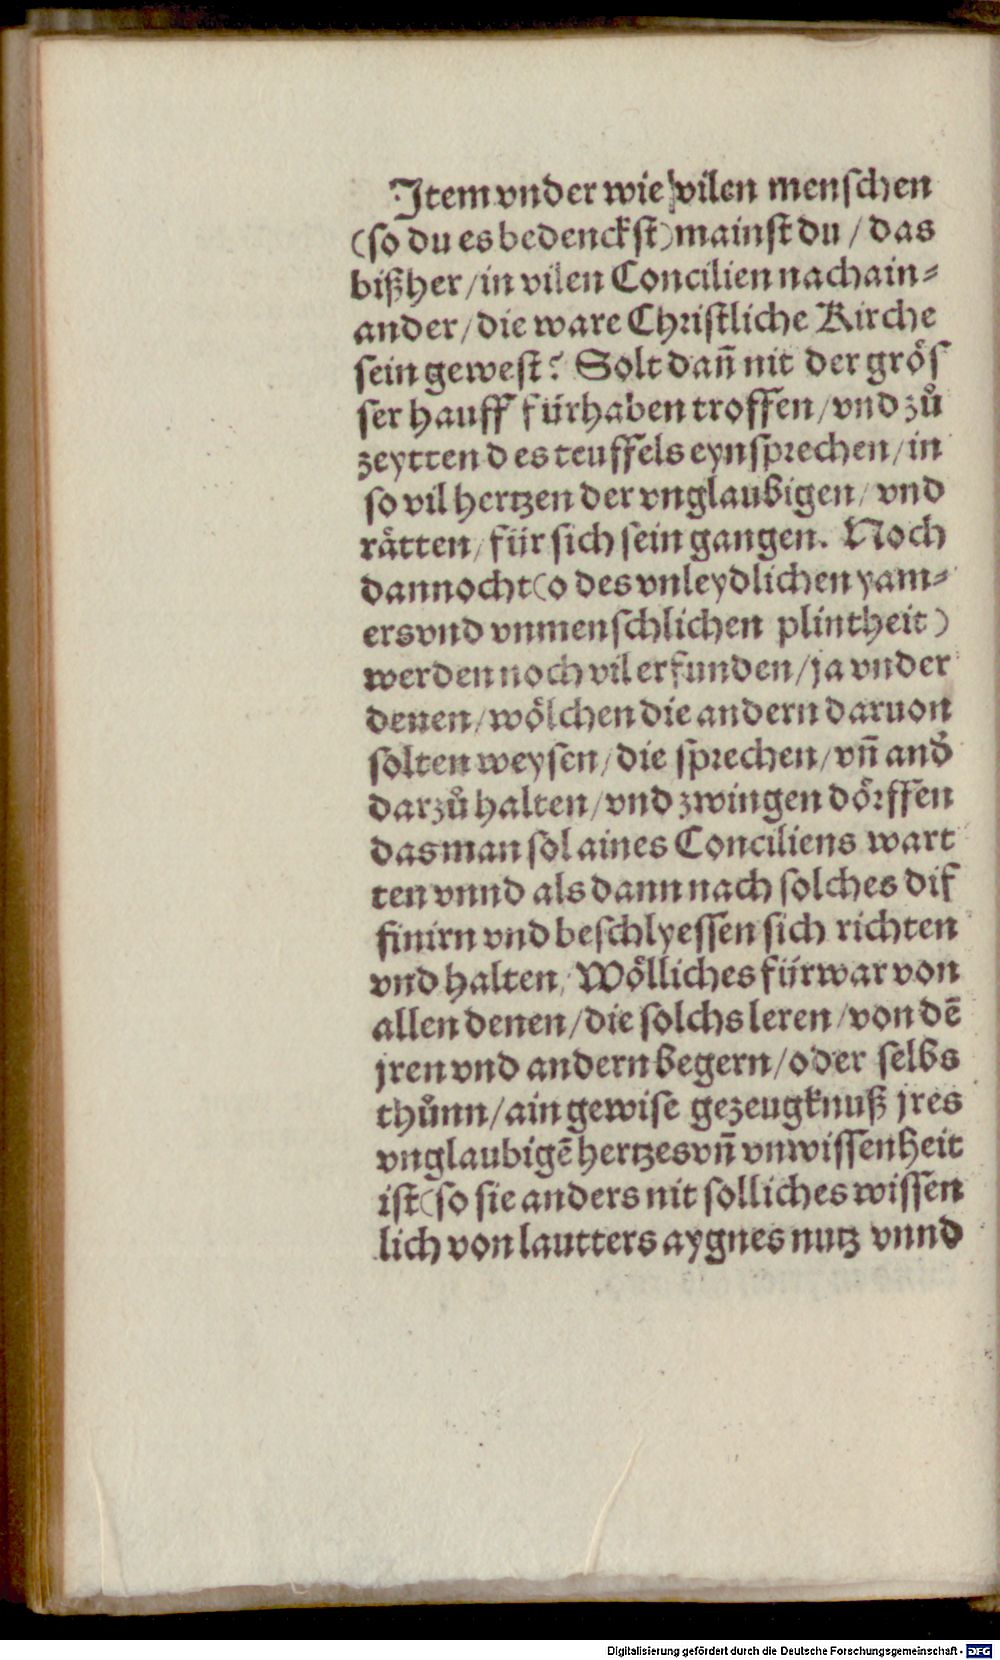 Item vnder wie vilen menschen
(so du es bedenckst) mainst du / das
bißher / in vilen Concilien nachain⸗
ander / die ware Christliche Kirche
sein gewest? Solt dañ nit der grös
ser hauff fürhaben troffen / vnd zů
zeytten des teuffels eynsprechen / in
so vil hertzen der vnglaubigen / vnd
rätten / für sich sein gangen. Noch
dannocht (o des vnleydlichen yam⸗
ers vnd vnmenschlichen plintheit)
werden noch vil erfunden / ja vnder
denen / wölchen die andern daruon
solten weysen / die sprechen / vñ and̓
darzů halten / vnd zwingen dörffen
das man sol aines Conciliens wart
ten vnnd als dann nach solches dif
finirn vnd beschlyessen sich richten
vnd halten / Wölliches fürwar von
allen denen / die solchs leren / von dẽ
jren vnd andern begern / oder selbs
thůnn / ain gewise gezeugknuß jres
vnglaubigẽ hertzes vñ vnwissenheit
ist (so sie anders nit solliches wissen
lich von lautters aygnes nutz vnnd
Digitalisierung gefördert durch die Deutsche Forschungsgemeinschaft - DFG